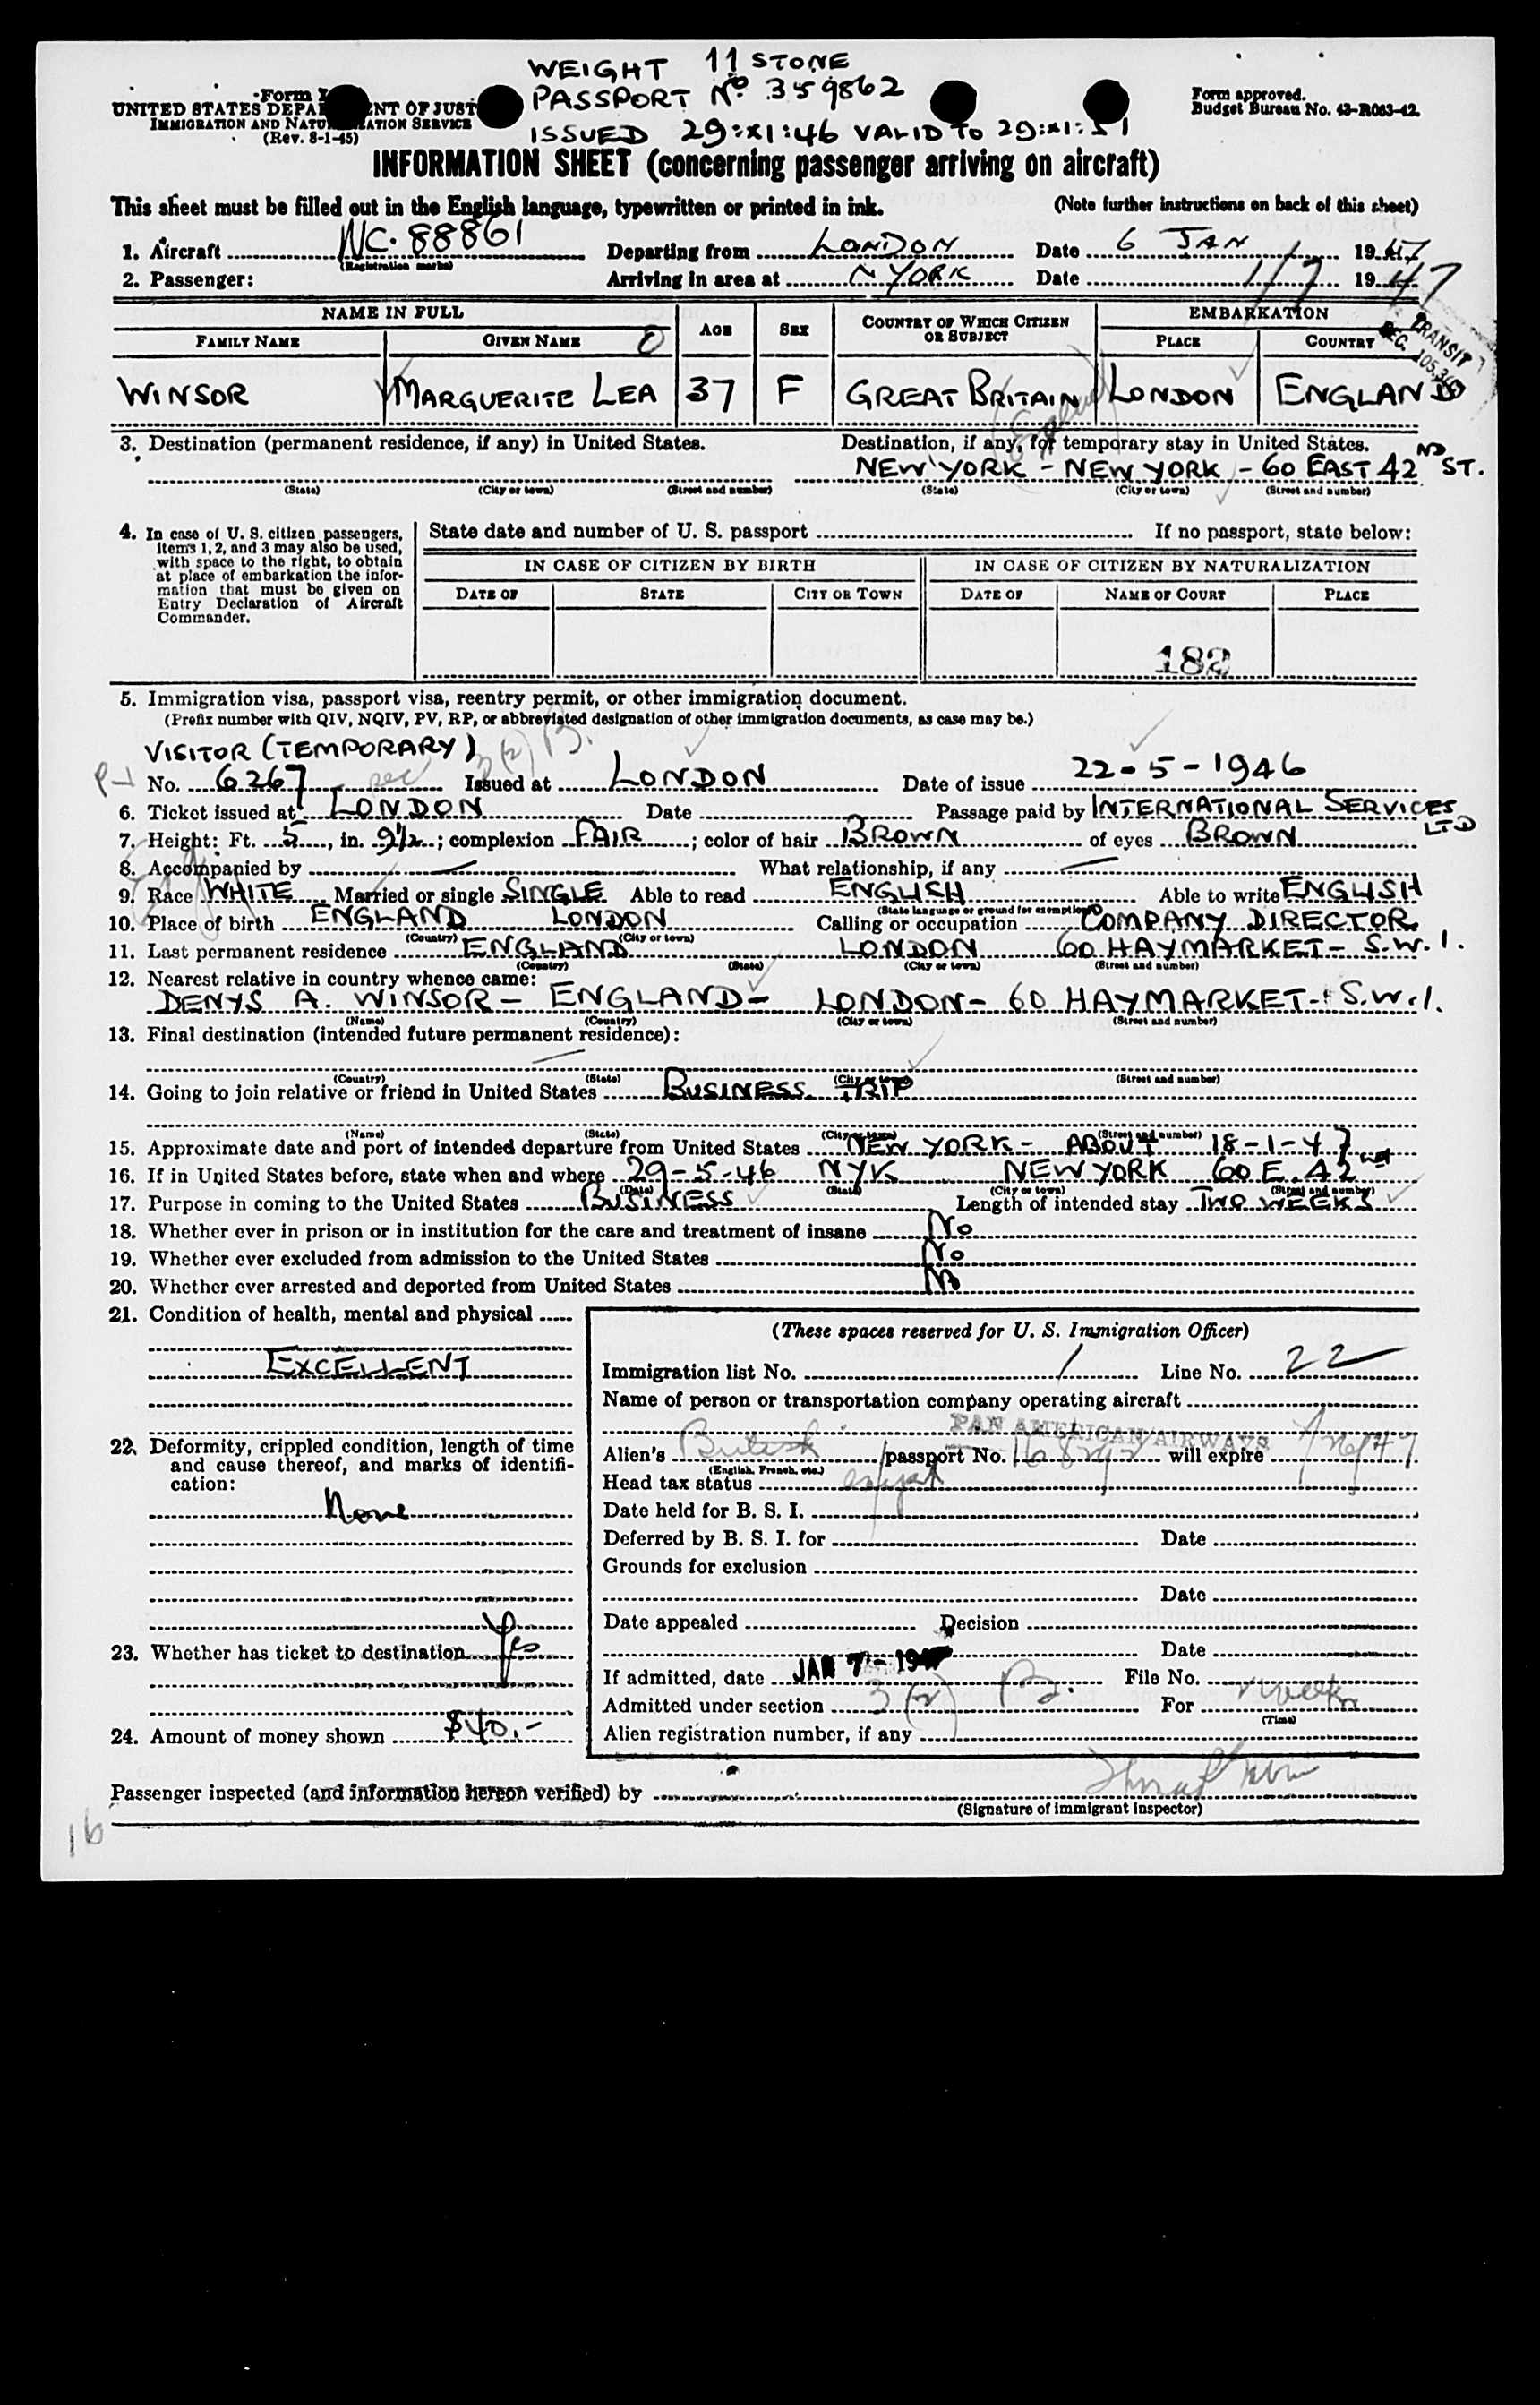 WEIGHT 11 STONE
PASSPORT No 359862
ISSUED 29:XI:46 VALID TO 29:XI:51
Form
UNITED STATES DEPA NT OF JUST
IMMIGRATION AND NATU ATION SERVICE
(Rev. 8-1-45)
Form approved.
Budget Bureau No. 43-R063-42.
INFORMATION SHEET (concerning passenger arriving on aircraft)
This sheet must be filled out in the English language, typewritten or printed in ink. (Note further instructions on back of this sheet)
1. Aircraft NC. 88861 Departing from LONDON Date 6 JAN 1947
(Registration marks)
2. Passenger: Arriving in area at N YORK Date 1/7 1947
NAME IN FULL AGE SEX COUNTRY OF WHICH CITIZEN OR SUBJECT EMBARKATION
FAMILY NAME GIVEN NAME PLACE COUNTRY
TRANSIT
REG. 105.3(
WINSOR MARGUERITE LEA 37 F GREAT BRITAIN LONDON ENGLAND
(England)
3. Destination (permanent residence, if any) in United States. Destination, if any, for temporary stay in United States.
NEW YORK - NEW YORK - 60 EAST 42 ND ST.
(State) (City or town) (Street and number) (State) (City or town) (Street and number)
4. In case of U. S. citizen passengers, items 1, 2, and 3 may also be used, with space to the right, to obtain at place of embarkation the information that must be given on Entry Declaration of Aircraft Commander.
State date and number of U. S. passport If no passport, state below:
IN CASE OF CITIZEN BY BIRTH IN CASE OF CITIZEN BY NATURALIZATION
DATE OF STATE CITY OR TOWN DATE OF NAME OF COURT PLACE
182
5. Immigration visa, passport visa, reentry permit, or other immigration document.
(Prefix number with QIV, NQIV, PV, RP, or abbreviated designation of other immigration documents, as case may be.)
VISITOR (TEMPORARY) 3(2) B.
No. 6267 Issued at LONDON Date of issue 22-5-1946
6. Ticket issued at LONDON Date Passage paid by INTERNATIONAL SERVICES LTD
7. Height: Ft. 5, in. 9½; complexion FAIR; color of hair BROWN of eyes BROWN
8. Accompanied by — What relationship, if any —
9. Race WHITE Married or single SINGLE Able to read ENGLISH Able to write ENGLISH
(State language or ground for exemption)
10. Place of birth ENGLAND LONDON Calling or occupation COMPANY DIRECTOR
(Country) (City or town)
11. Last permanent residence ENGLAND LONDON 60 HAYMARKET - S.W.1.
(Country) (State) (City or town) (Street and number)
12. Nearest relative in country whence came:
DENYS A. WINSOR - ENGLAND - LONDON - 60 HAYMARKET - S.W.1.
(Name) (Country) (City or town) (Street and number)
13. Final destination (intended future permanent residence):
—
(Country) (State) (City or town) (Street and number)
14. Going to join relative or friend in United States BUSINESS TRIP
(Name) (State) (City or town) (Street and number)
15. Approximate date and port of intended departure from United States NEW YORK - ABOUT 18-1-47
16. If in United States before, state when and where 29-5-46 NYK NEW YORK 60 E. 42 nd
(Date) (State) (City or town) (Street and number)
17. Purpose in coming to the United States BUSINESS Length of intended stay TWO WEEKS
18. Whether ever in prison or in institution for the care and treatment of insane No
19. Whether ever excluded from admission to the United States No
20. Whether ever arrested and deported from United States No
21. Condition of health, mental and physical
EXCELLENT
22. Deformity, crippled condition, length of time and cause thereof, and marks of identification:
None
23. Whether has ticket to destination Yes
24. Amount of money shown $40.-
(These spaces reserved for U. S. Immigration Officer)
Immigration list No. 1 Line No. 22
Name of person or transportation company operating aircraft
PAN AMERICAN AIRWAYS
Alien's British passport No. will expire
(English, French, etc.)
Head tax status
Date held for B. S. I.
Deferred by B. S. I. for Date
Grounds for exclusion
Date
Date appealed Decision
Date
If admitted, date JAN 7 - 1947 File No.
Admitted under section 3(2) B. For 2 weeks
(Time)
Alien registration number, if any
Passenger inspected (and information hereon verified) by
(Signature of immigrant inspector)
16